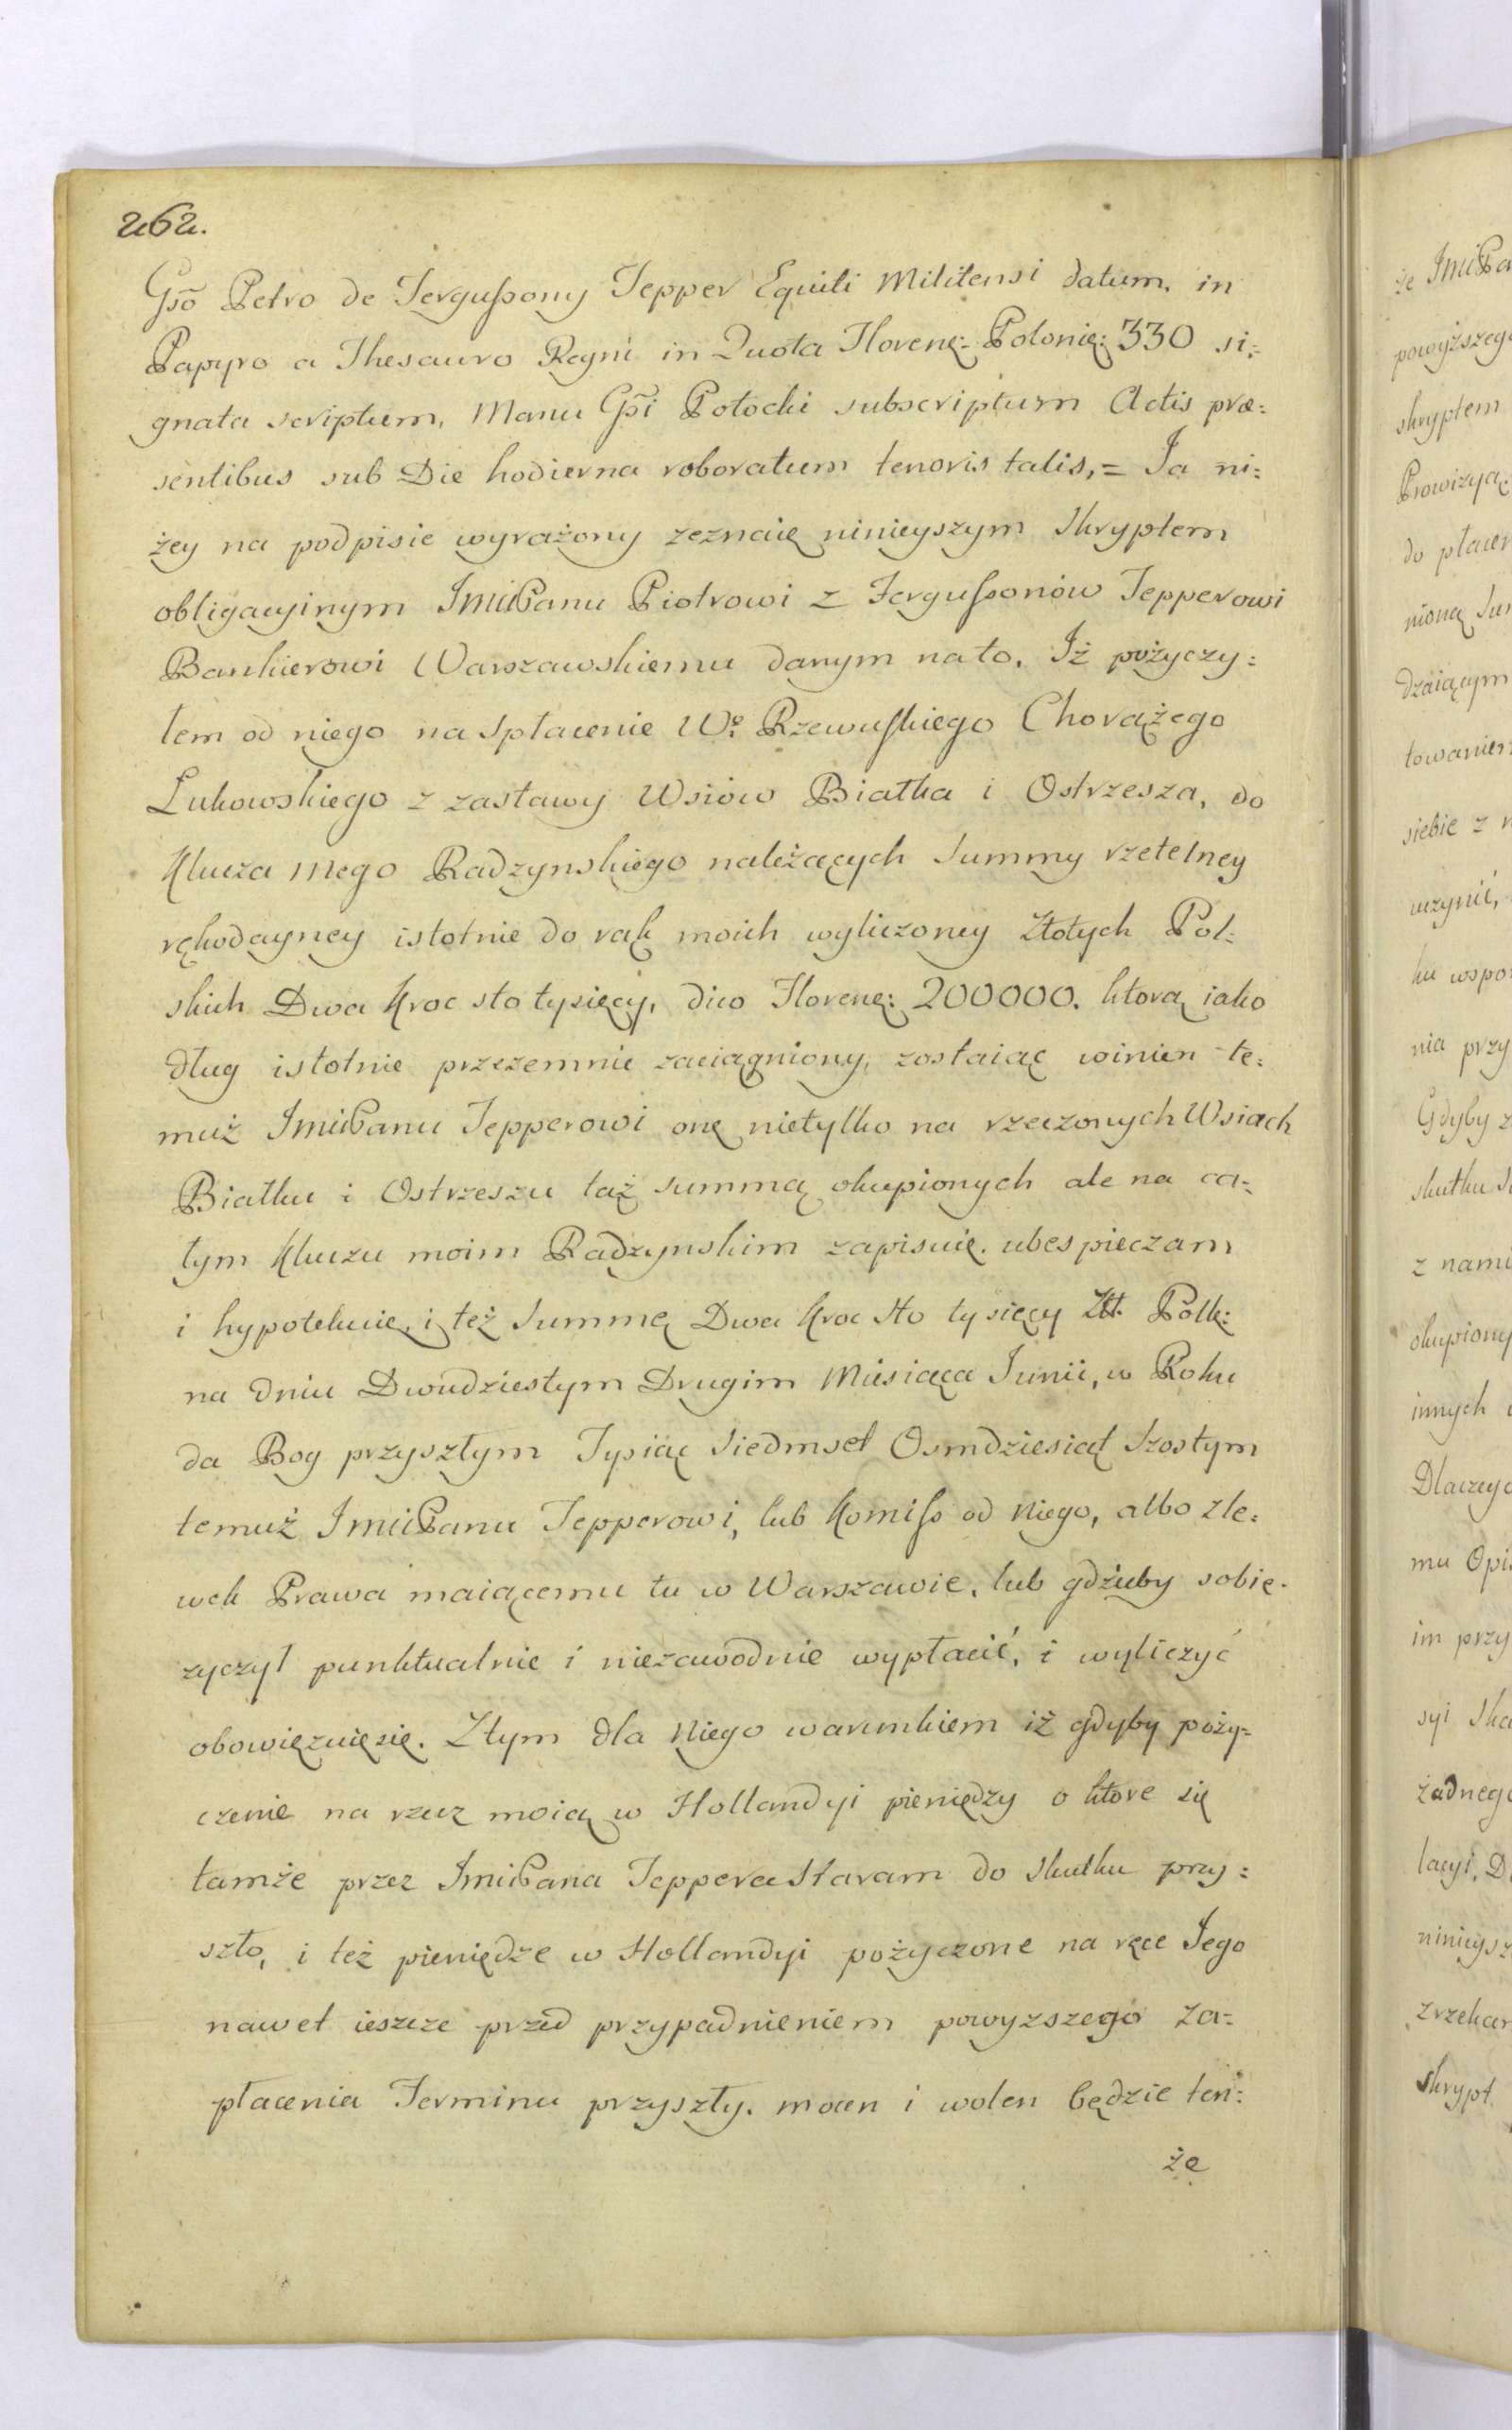 262.
Gsō Petro de Fergusſony Tepper Equiti Militensi datum, in
Papyro a Thesauro Regni in Quota Florenę: Polonię: 330 si=
gnata scriptum, Manu Gsī Potocki subscriptum Actis præ=
sentibus sub Die hodierna roboratum tenoris talis, = Ja ni=
żey na podpisie wyrażony zeznaię ninieyszym Skryptem
obligacyinym ImićPanu Piotrowi z Fergusſonów Tepperowi
Bankierowi Warszawskiemu danym nato, Iż pożyczy=
łem od niego na spłacenie Wo. Rzewuſkiego Chorążego
Łukowskiego z zastawy Wsiów Białka i Ostrzesza, do
Klucza mego Radzynskiego należących Summy rzetelney
rękodayney istotnie do rąk moich wyliczoney Złotych Pol=
skich Dwa kroc sto tysięcy, dico Florenę: 200000. ktorą iako
dług istotnie przezemnie zaciągniony, zostaiąc winien te=
muż ImićPanu Tepperowi onę nietylko na rzeczonych Wsiach
Białku i Ostrzeszu taż summą okupionych ale na ca=
łym Kluczu moim Radzynskim zapisuię. ubespieczam
i hypotekuię, i też Summę Dwa kroc sto tysięcy Złł. Polk:
na dniu Dwudziestym Drugim Miesiąca Junii, w Roku
da Bog przyszłym Tysiąc Siedmset Osmdziesiąt Szostym
temuż ImićPanu Tepperowi, lub Komiſs od Niego, albo zle=
wek Prawa maiącemu tu w Warszawie, lub gdzieby sobie
zyczył punktualnie i niezawodnie wypłacić, i wyliczyć
obowięzuię się. Z tym dla Niego warunkiem iż gdyby poży=
czenie na rzecz moią w Hollandyi pieniędzy o które się
tamże przez ImićPana Teppera staram do skutku przy=
szło, i też pieniędze w Hollandyi pożyczone na ręce Jego
nawet ieszcze przed przypadnieniem powyzszego za=
płacenia Terminu przyszły. mocen i wolen będzie ten=
że